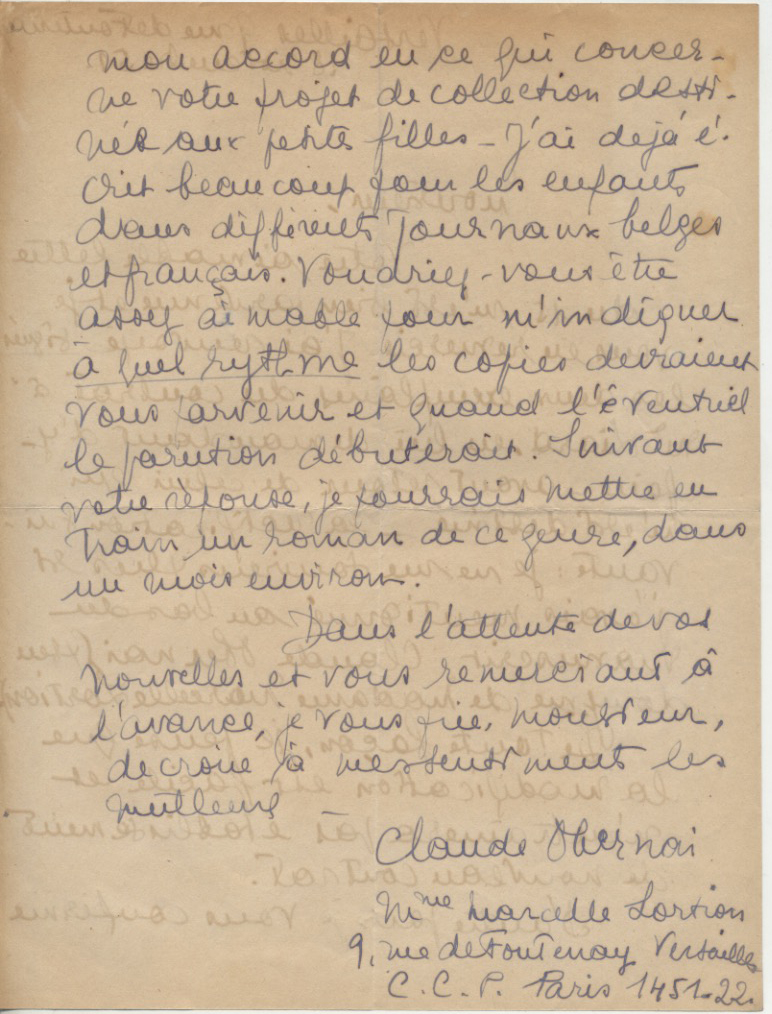 mon accord en ce qui concer-
ne votre projet de collection desti-
née aux petites filles - J'ai dejà é-
crit beaucoup pour les enfants
dans différents journaux belges
et français. Voudriez-vous être
assez aimable pour m'indiquer
à quel rythme les copies devraient
vous parvenir et quand l'éventuel
le parution débuterait. Suivant
votre réponse, je pourrais mettre en
train un roman de ce genre, dans
un mois environ.
Dans l'attente de vos
nouvelles et vous remerciant à
l'avance, je vous prie, monsieur,
de croire à mes sentiments les
meilleurs -
Claude Obernai
Mme Marcelle Lortion
9, rue de Fontenay Versailles
C.C.P. Paris 1451.22.